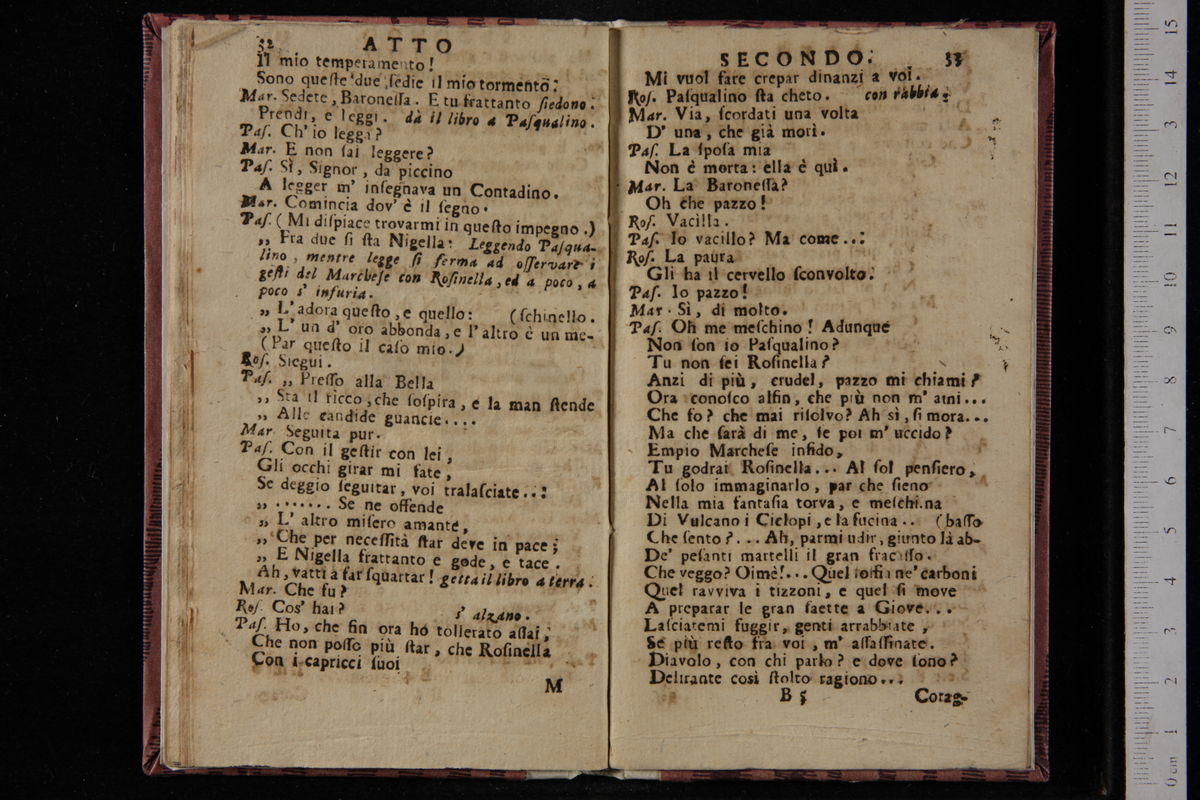 32 ATTO
Il mio temperamento!
Sono queſte due ſedie il mio tormento:
Mar. Sedete, Baroneſſa. E tu frattanto ſiedono.
Prendi, e leggi. da il libro a Paſqualino.
Paſ. Ch' io legga?
Mar. E non ſai leggere?
Paſ. Sì, Signor, da piccino
A legger m' inſegnava un Contadino.
Mar. Comincia dov' è il ſegno.
Paſ. (Mi diſpiace trovarmi in queſto impegno.)
„ Fra due ſi ſta Nigella: Leggendo Paſqua-
lino, mentre legge ſi ferma ad oſſervare i
geſti del Marcheſe con Roſinella, ed a poco, a
poco s' infuria.
„ L' adora queſto, e quello: (ſchinello.
„ L' un d' oro abbonda, e l' altro è un me-
(Par queſto il caſo mio.)
Roſ. Siegui.
Paſ. „ Preſſo alla Bella
„ Sta il ricco, che ſoſpira, e la man ſtende
„ Alle candide guancie....
Mar. Seguita pur.
Paſ. Con il geſtir con lei,
Gli occhi girar mi fate,
Se deggio ſeguitar, voi tralaſciate..:
„ ....... Se ne offende
„ L' altro miſero amante,
„ Che per neceſſità ſtar deve in pace;
„ E Nigella frattanto e gode, e tace.
Ah, vatti a far ſquartar! getta il libro a terra.
Mar. Che fu?
Roſ. Cos' hai? s' alzano.
Paſ. Ho, che fin ora hó tollerato aſſai;
Che non poſſo più ſtar, che Roſinella
Con i capricci ſuoi
M
SECONDO. 33
Mi vuol fare crepar dinanzi a voi.
Roſ. Paſqualino ſta cheto. con rabbia.
Mar. Via, ſcordati una volta
D' una, che già morì.
Paſ. La ſpoſa mia
Non è morta: ella è quì.
Mar. La Baroneſſa?
Oh che pazzo!
Roſ. Vacilla.
Paſ. Io vacillo? Ma come..:
Roſ. La paura
Gli ha il cervello ſconvolto.
Paſ. Io pazzo!
Mar. Sì, di molto.
Paſ. Oh me meſchino! Adunque
Non ſon io Paſqualino?
Tu non ſei Roſinella?
Anzi di più, crudel, pazzo mi chiami?
Ora conoſco alfin, che più non m' ami...
Che fo? che mai riſolvo? Ah sì, ſi mora...
Ma che ſarà di me, ſe poi m' uccido?
Empio Marcheſe infido,
Tu godrai Roſinella... Al ſol penſiero,
Al ſolo immaginarlo, par che ſieno
Nella mia fantaſia torva, e meſchina
Di Vulcano i Ciclopi, e la fucina.. (baſſo
Che ſento?... Ah, parmi udir, giunto là ab-
De' peſanti martelli il gran fracaſſo.
Che veggo? Oimè!... Quel ſoffia ne' carboni
Quel ravviva i tizzoni, e quel ſi move
A preparar le gran ſaette a Giove...
Laſciatemi fuggir, genti arrabbiate,
Se più reſto fra voi, m' aſſaſſinate.
Diavolo, con chi parlo? e dove ſono?
Delirante così ſtolto ragiono...
B 5 Corag-
15
14
13
12
11
10
9
8
7
6
5
4
3
2
1
0 cm